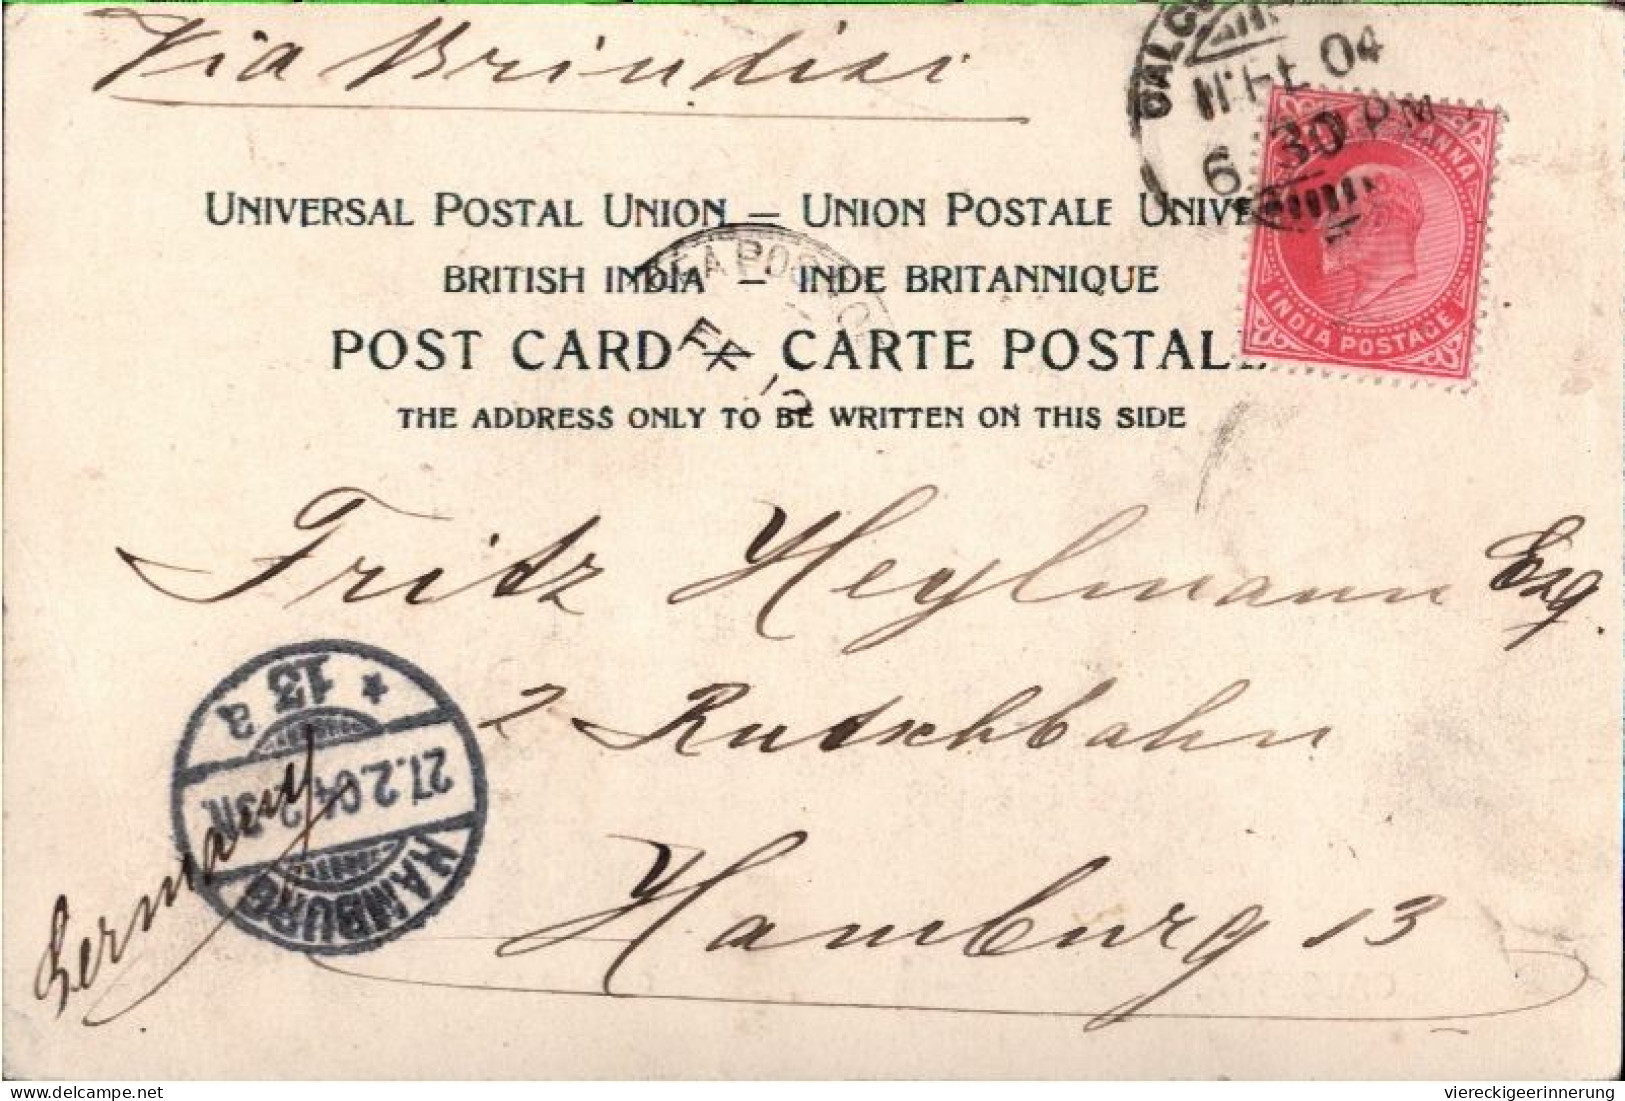 Via Brindisi
CALC
11 FE 04
6 30 PM
ANNA
INDIA POSTAGE
UNIVERSAL POSTAL UNION — UNION POSTALE UNIVE
BRITISH INDIA — INDE BRITANNIQUE
POST CARD — CARTE POSTALE
THE ADDRESS ONLY TO BE WRITTEN ON THIS SIDE
SEA POST O
FE 12
Fritz Heylmann Esq.
2 Rutschbahn
Hamburg 13
Germany
HAMBURG
27.2.04. 2-3N.
* 13 a
delcampe.net
viereckigeerinnerung